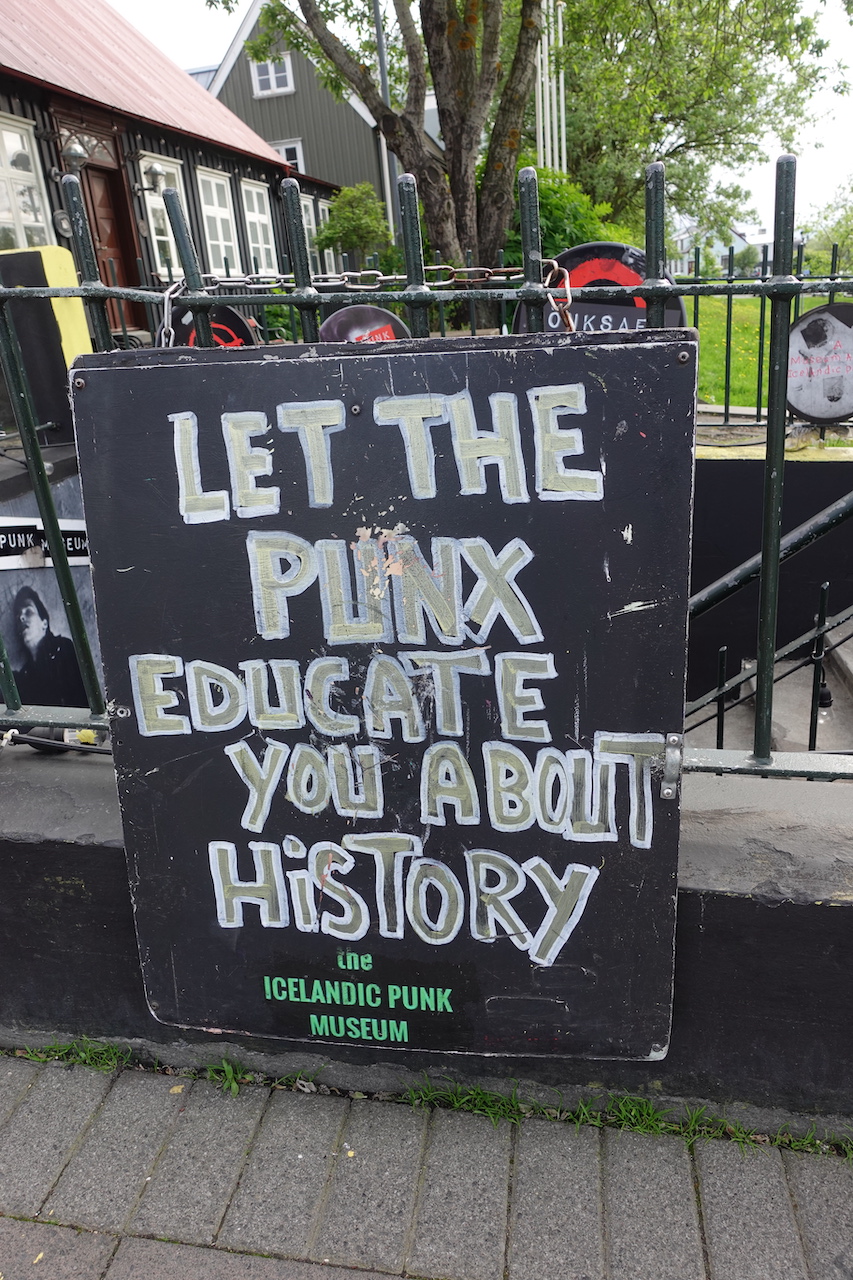 ONKSAF
PUNK
PUNK MUSEUM
LET THE
PUNX
EDUCATE
YOU ABOUT
HiSTORY
the
ICELANDIC PUNK
MUSEUM